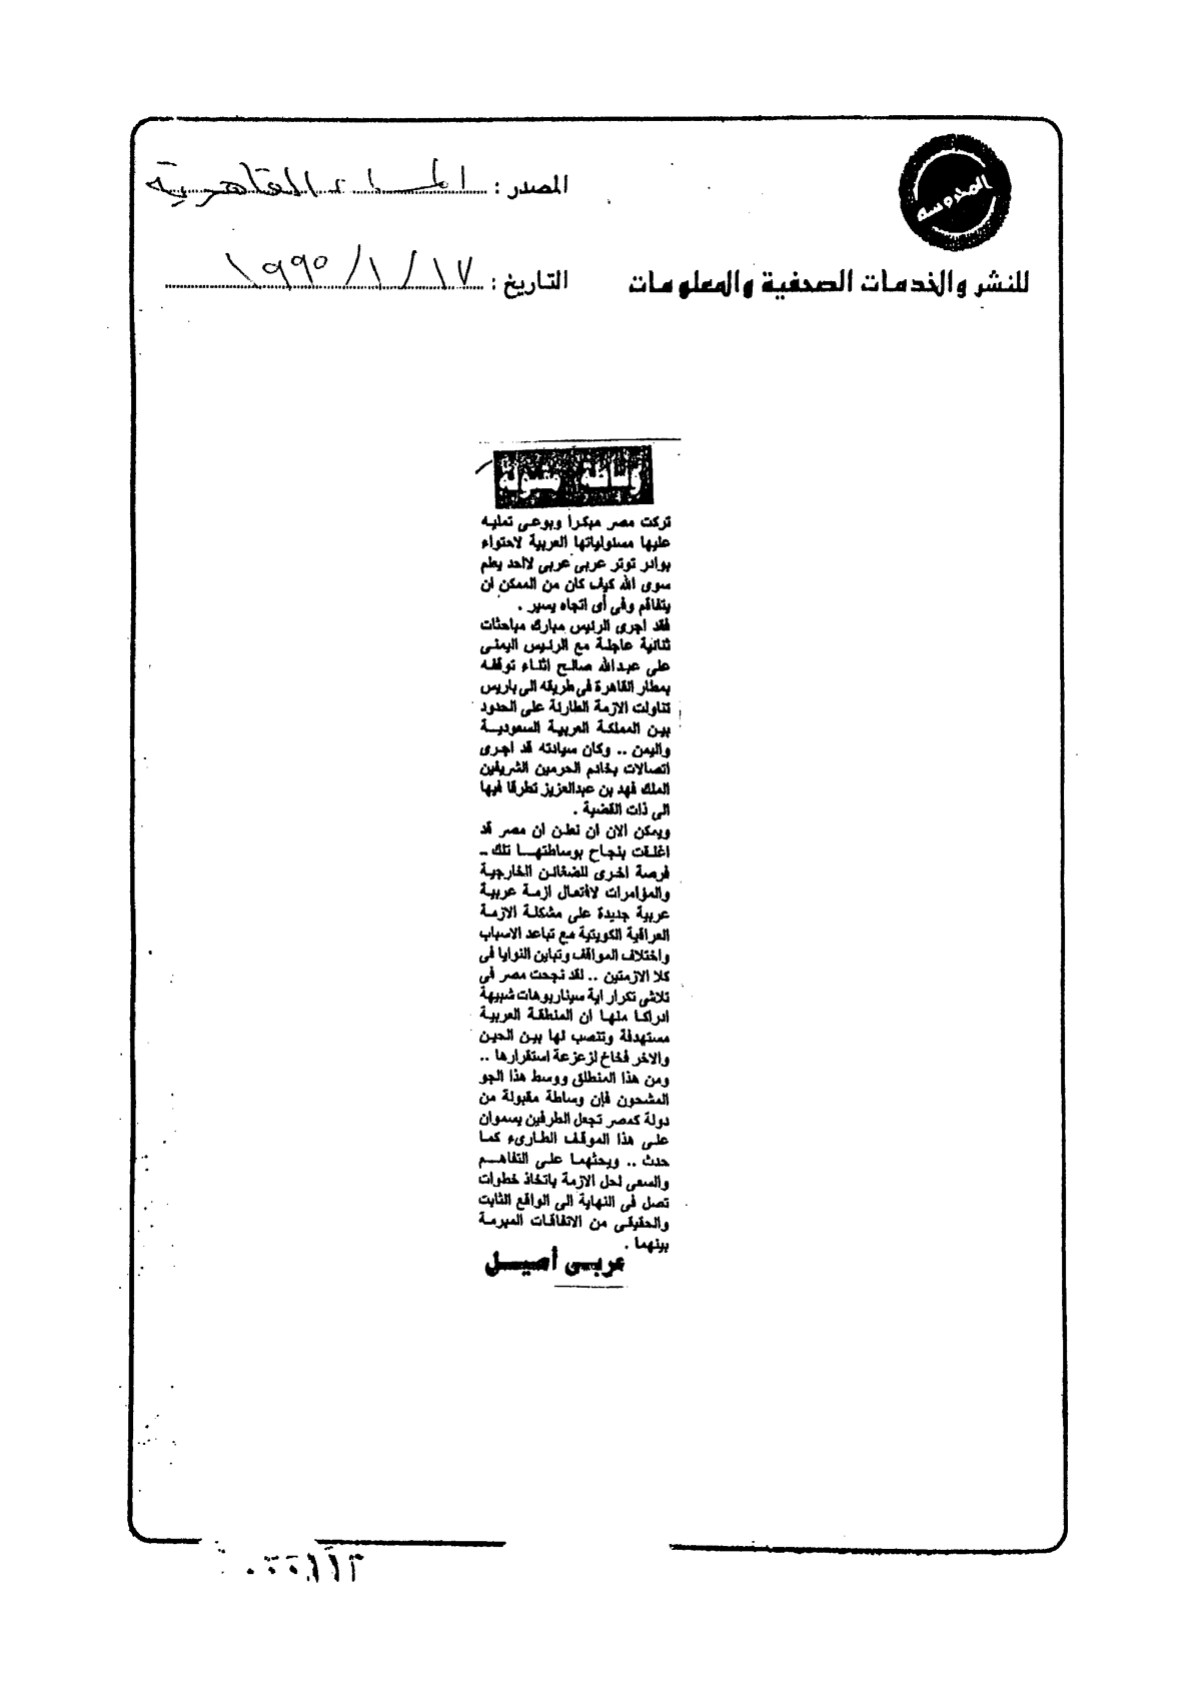 المحروسه
المصدر : المساء القاهرية
للنشر والخدمات الصحفية والمعلومات
التاريخ : ١٧ / ١ / ١٩٩٥
وساطة مقبولة
تركت مصر مبكرا وبوعى تمليه
عليها مسئولياتها العربية لاحتواء
بوادر توتر عربى عربى لااحد يعلم
سوى الله كيف كان من الممكن ان
يتفاقم وفى أى اتجاه يسير .
فقد اجرى الرئيس مبارك مباحثات
ثنائية عاجلة مع الرئيس اليمنى
على عبدالله صالح اثناء توقفه
بمطار القاهرة فى طريقه الى باريس
تناولت الازمة الطارئة على الحدود
بين المملكة العربية السعودية
واليمن .. وكان سيادته قد اجرى
اتصالات بخادم الحرمين الشريفين
الملك فهد بن عبدالعزيز تطرقا فيها
الى ذات القضية .
ويمكن الان ان نعلن ان مصر قد
اغلقت بنجاح بوساطتها تلك ـ
فرصة اخرى للضغائن الخارجية
والمؤامرات لافتعال ازمة عربية
عربية جديدة على مشكلة الازمة
العراقية الكويتية مع تباعد الاسباب
واختلاف المواقف وتباين النوايا فى
كلا الازمتين .. لقد نجحت مصر فى
تلاشى تكرار اية سيناريوهات شبيهة
ادراكا منها ان المنطقة العربية
مستهدفة وتنصب لها بين الحين
والاخر فخاخ لزعزعة استقرارها ..
ومن هذا المنطلق ووسط هذا الجو
المشحون فإن وساطة مقبولة من
دولة كمصر تجعل الطرفين يسموان
على هذا الموقف الطارىء كما
حدث .. ويحثهما على التفاهم
والسعى لحل الازمة باتخاذ خطوات
تصل فى النهاية الى الواقع الثابت
والحقيقى من الاتفاقات المبرمة
بينهما .
عربى أصيل